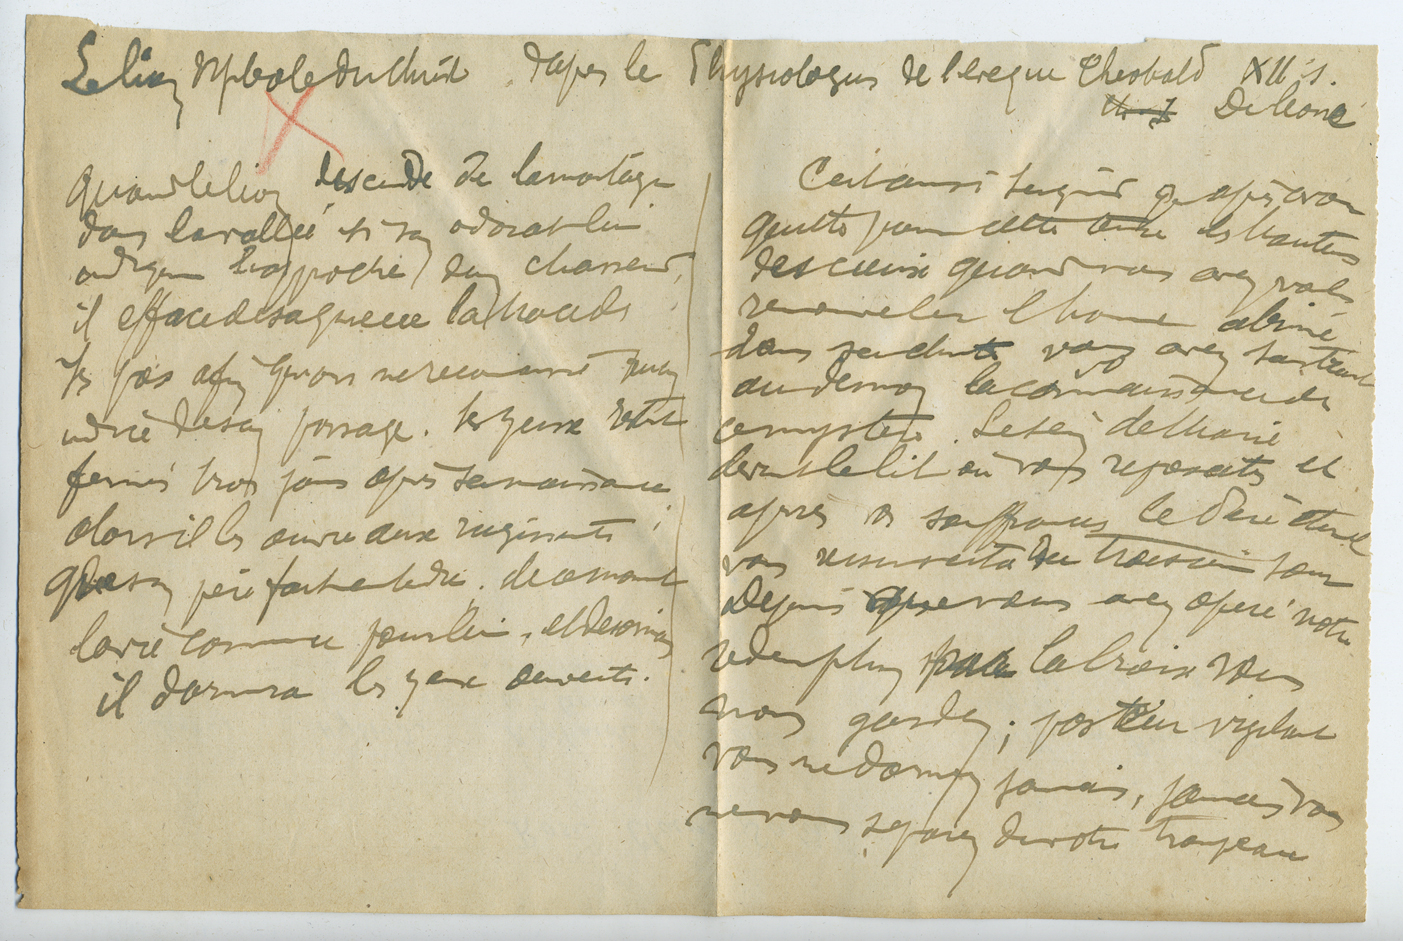 Le lion symbole du Christ. d'après le Physiologus de l'eveque Theobald XII s.
De Mone
Quand le lion descend de la montagne
dans la vallée et si son odorat lui
indique l'approche d'un chasseur,
il efface de sa queue la trace de
ses pas afin qu'on ne reconnaisse
de son passage. Ses yeux restent
fermés trois jours après sa naissance
alors il les ouvre aux rugissements
que son père fait entendre. de ce moment
la vie commence pour lui, et desormais
il dormira les yeux ouverts.
C'est ainsi Seigneur qu'après avoir
quitté pour cette terre les hauteurs
des cieux quand vous avez voulu
renouveler l'homme abimé
dans sa chute vous avez soustrait
au demon la connaissance de
ce mystère. Le sein de Marie
devint le lit où vous reposates et
après vos souffrances le Père éternel
vous ressuscita du troisième jour
Depuis que vous avez opéré notre
redemption par la croix vous
nous gardez; pasteur vigilant
vous ne dormez jamais, jamais vous
ne vous separez de votre troupeau